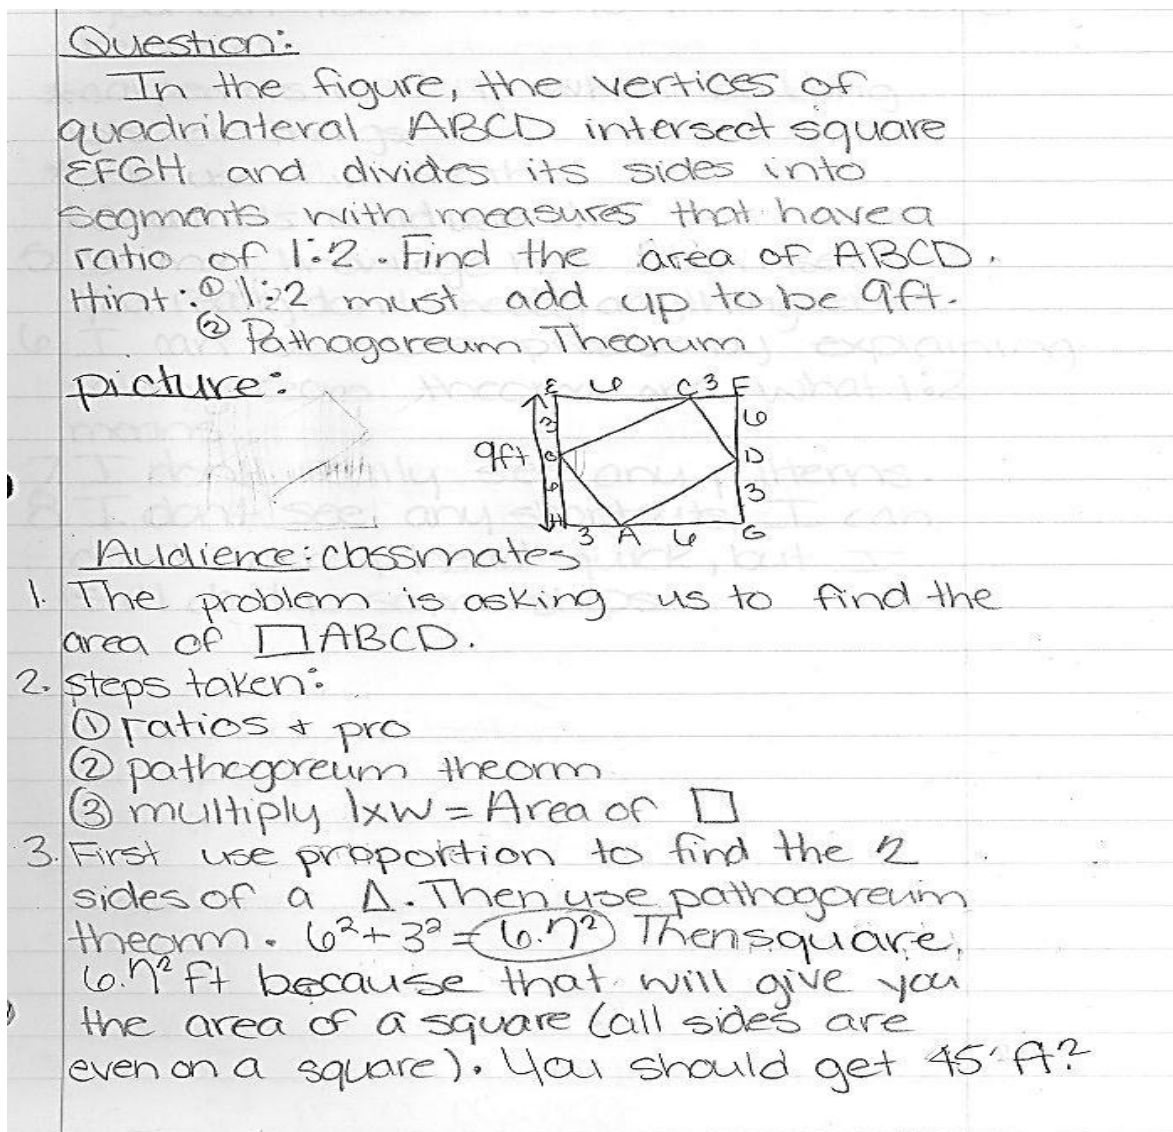 Question:
In the figure, the vertices of
quadrilateral ABCD intersect square
EFGH and divides its sides into
segments with measures that have a
ratio of 1:2. Find the area of ABCD.
Hint: ① 1:2 must add up to be 9ft.
② Pathagoreum Theorum
picture:
E 6 C 3 F
3 6
9ft D
6 3
H 3 A 6 G
Audience: classmates
1. The problem is asking us to find the
area of □ ABCD.
2. steps taken:
① ratios + pro
② pathagoreum theorm
③ multiply lxw = Area of □
3. First use proportion to find the 2
sides of a Δ. Then use pathagoreum
theorm. 6²+3²=6.7² Then square,
6.7² ft because that will give you
the area of a square (all sides are
even on a square). You should get 45 ft²